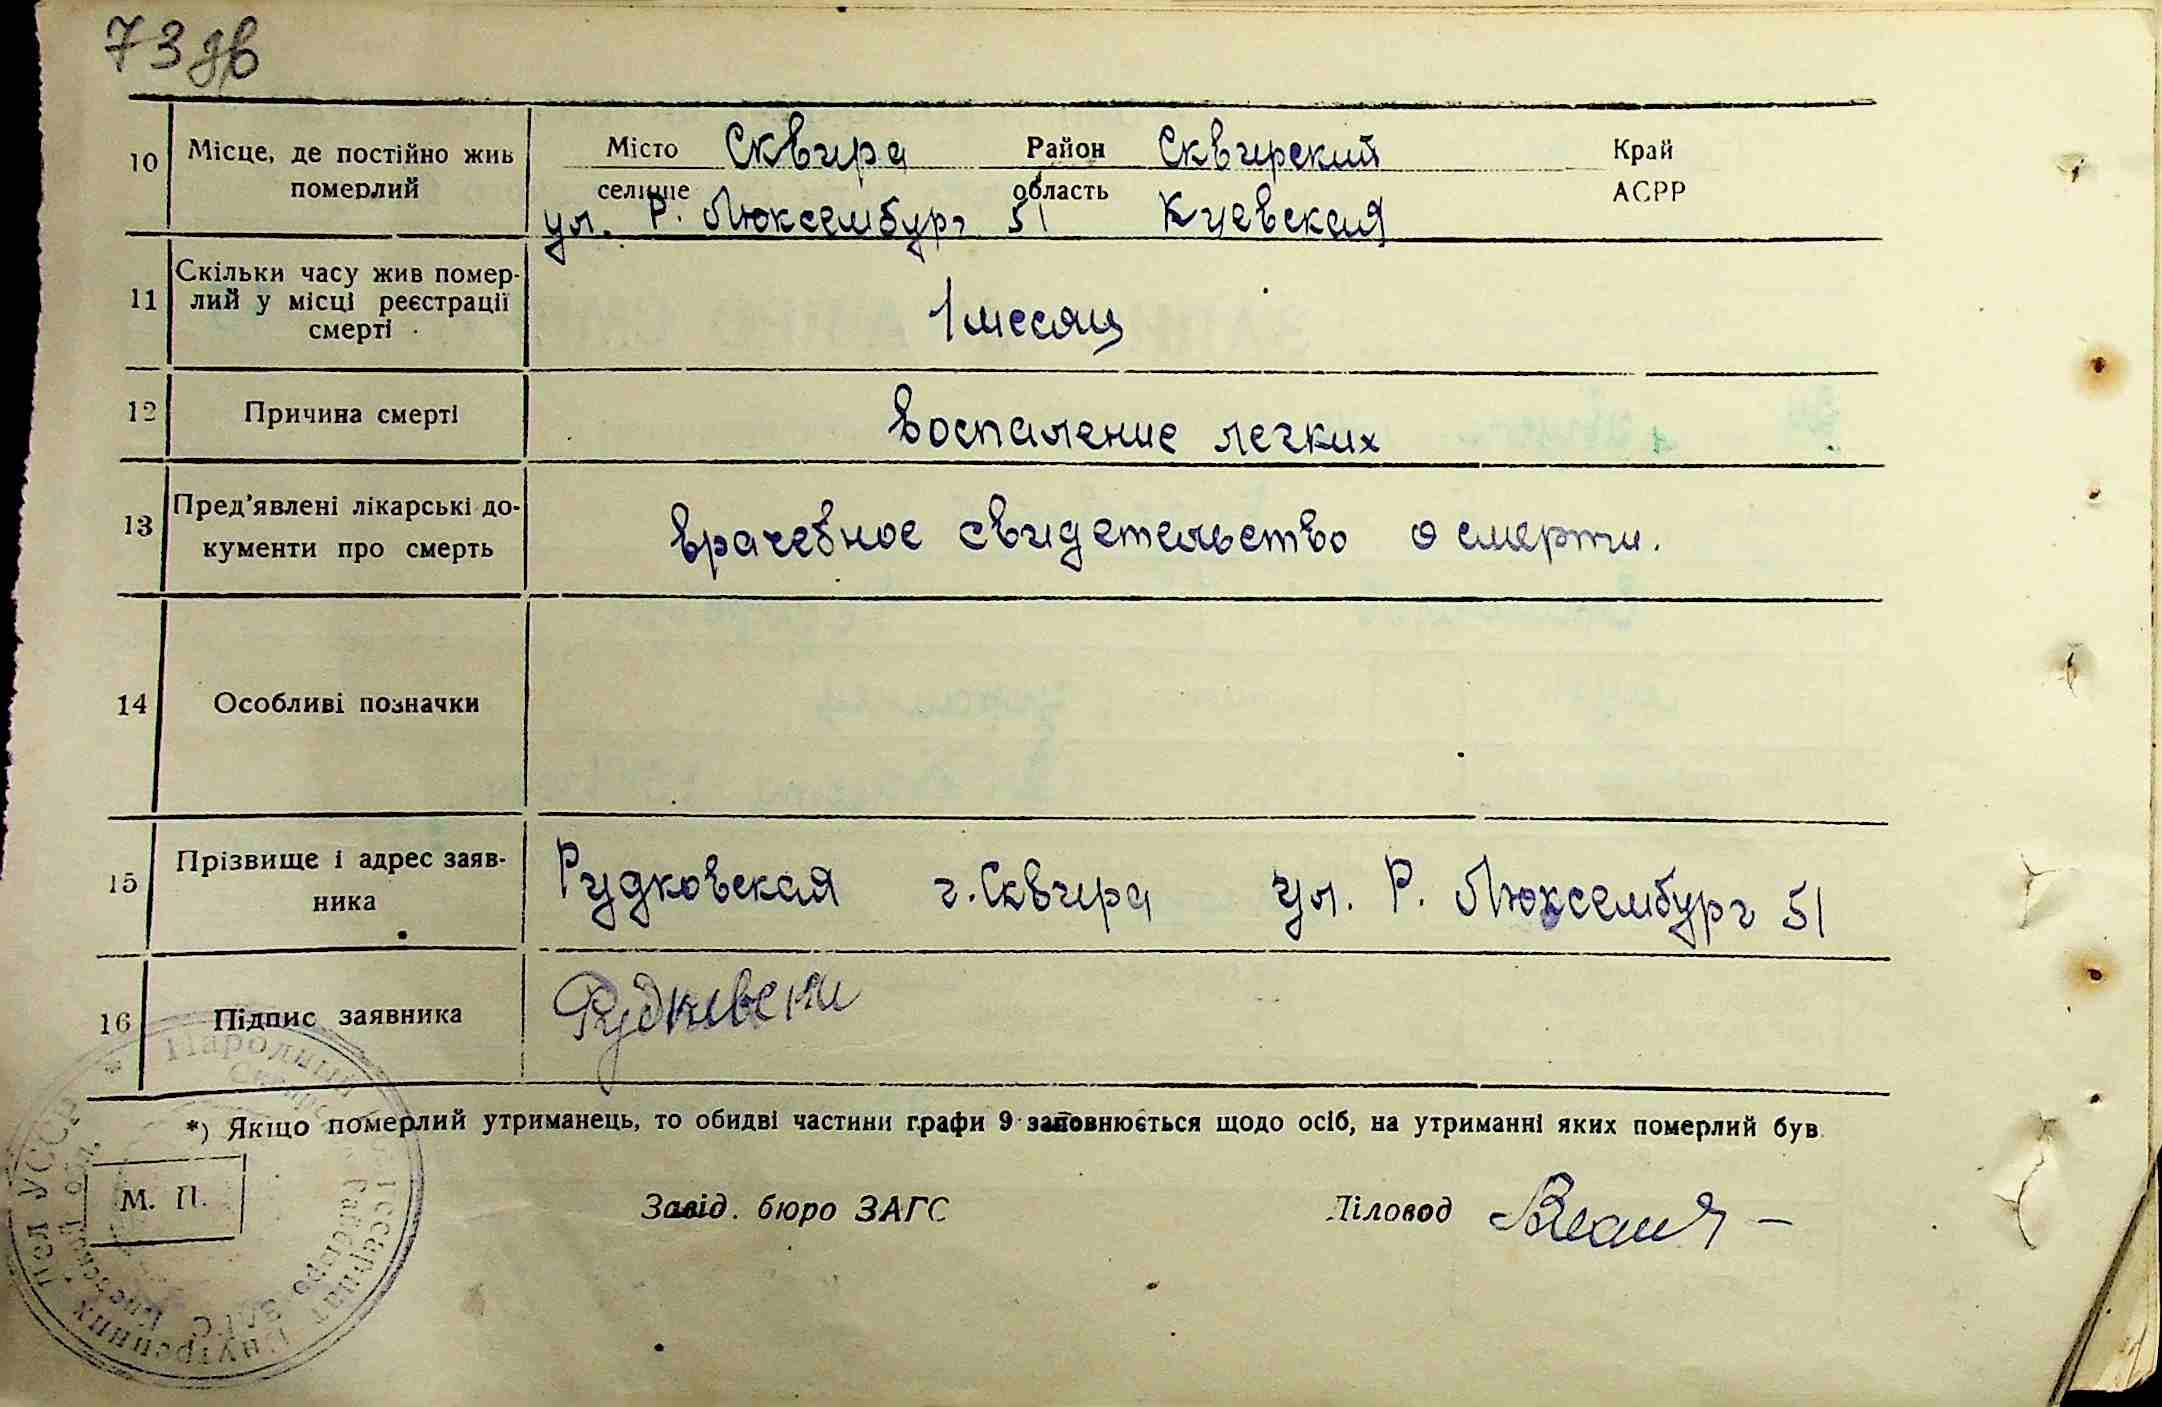 73 зв
10 Місце, де постійно жив померлий
Місто Сквира Район Сквирский Край
селище область АСРР
ул. Р. Люксембург 51 Киевская
11 Скільки часу жив помер-
лий у місці реєстрації
смерті
1 месяц
12 Причина смерті воспаление легких
13 Пред'явлені лікарські до-
кументи про смерть
врачебное свидетельство о смерти.
14 Особливі позначки
15 Прізвище і адрес заяв-
ника
Рудковская г. Сквира ул. Р. Люксембург 51
16 Підпис заявника
*) Якщо померлий утриманець, то обидві частини графи 9 заповнюється щодо осіб, на утриманні яких померлий був
М. П. Завід. бюро ЗАГС Діловод